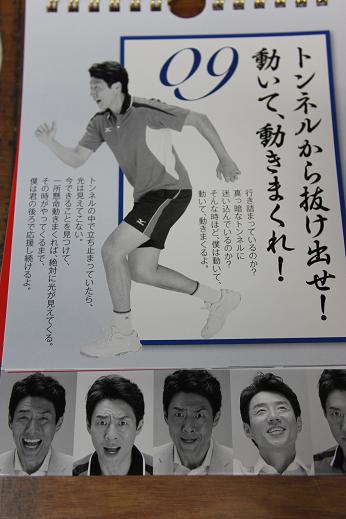 トンネルから抜け出せ!
動いて、動きまくれ!
09
行き詰まっているのか?
真っ暗なトンネルに
迷い込んでいるのか?
そんな時ほど、僕は動いて、
動いて、動きまくるよ。
トンネルの中で立ち止まっていたら、
光は見えてこない。
今できることを見つけて、
一所懸命動きまくれば、絶対に光が見えてくる。
その時がやってくるまで、
僕は君の後ろで応援し続けるよ。